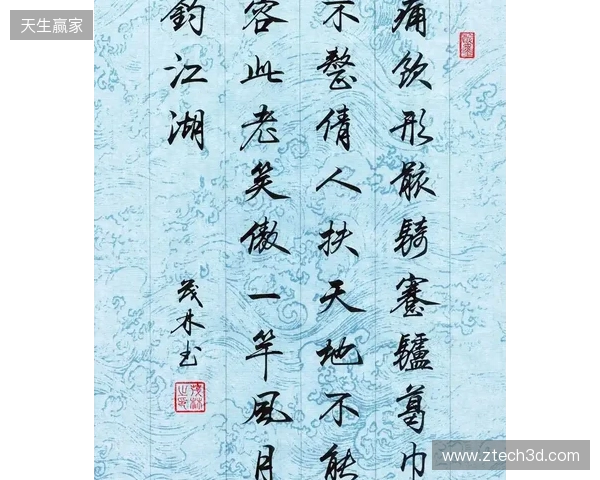 天生赢家
痛饮形骸騎蹇驢葛巾
不整倩人扶天地不能
容此老笑傲一竿風月
釣江湖
茂林书
www.ztech3d.com